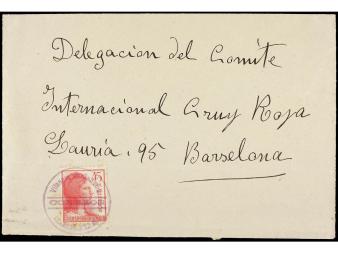 Delegacion del Comite
Internacional Cruz Roja
Lauria, 95 Barselona
45